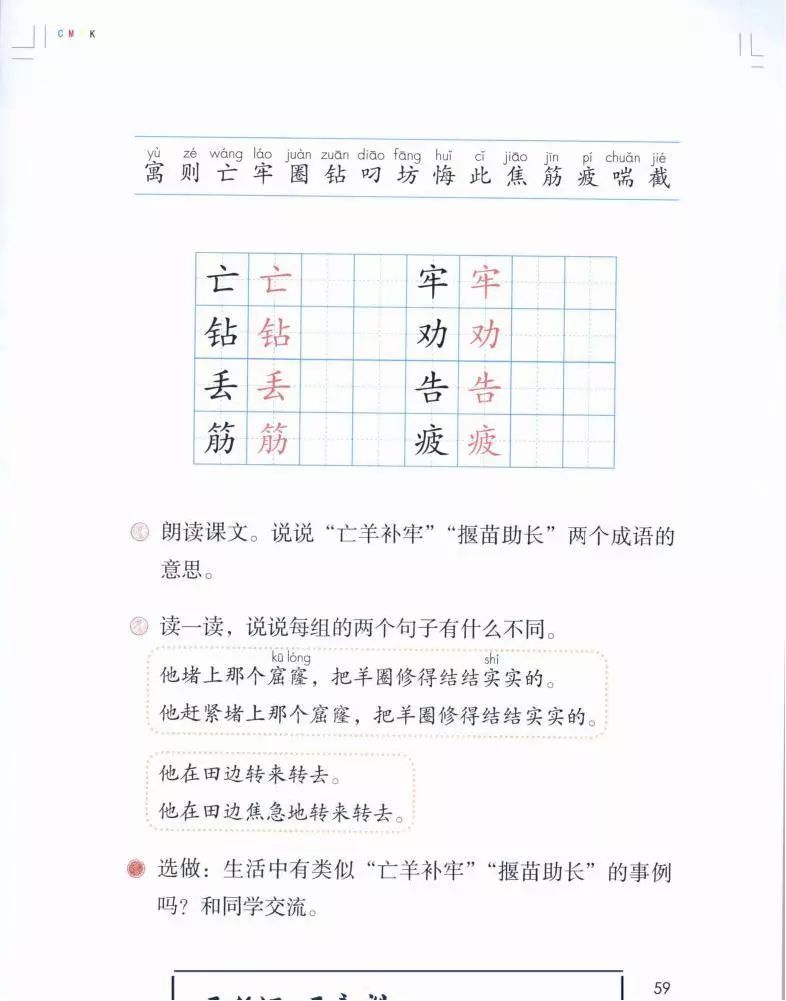 C M K
yù zé wáng láo juàn zuān diāo fāng huǐ cǐ jiāo jīn pí chuǎn jié
寓 则 亡 牢 圈 钻 叼 坊 悔 此 焦 筋 疲 喘 截
亡 亡 牢 牢
钻 钻 劝 劝
丢 丢 告 告
筋 筋 疲 疲
朗读课文。说说“亡羊补牢”“揠苗助长”两个成语的
意思。
读一读，说说每组的两个句子有什么不同。
kū lóng shi
他堵上那个窟窿，把羊圈修得结结实实的。
他赶紧堵上那个窟窿，把羊圈修得结结实实的。
他在田边转来转去。
他在田边焦急地转来转去。
选做：生活中有类似“亡羊补牢”“揠苗助长”的事例
吗？和同学交流。
59